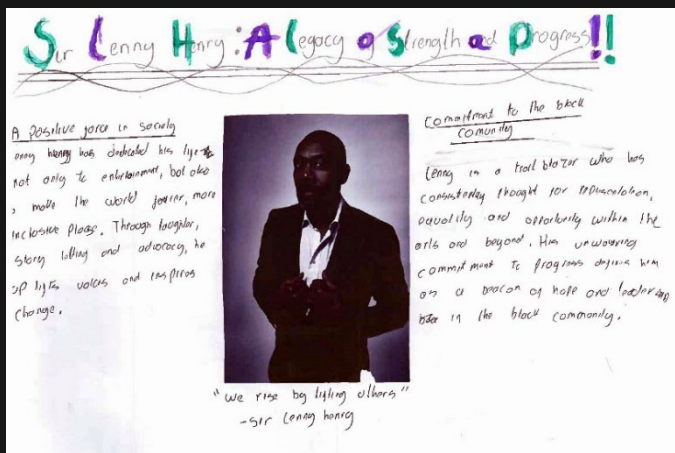 Sir Lenny Henry: A Legacy of Strength and Progress!!
A positive force in society
Lenny henry has dedicated his life to
not only to entertainment, but also
to make the world fairer, more
inclusive place. Through laughter,
story telling and advocacy, he
up lifts voices and inspires
change.
"we rise by lifting others"
-Sir Lenny henry
Commitment to the black
comunity
Lenny is a trail blazer who has
consistenley thought for
equality and opportunity within the
arts and beyond. His unwavering
commitment to progress defines him
as a beacon of hope and leadership
in the black community.